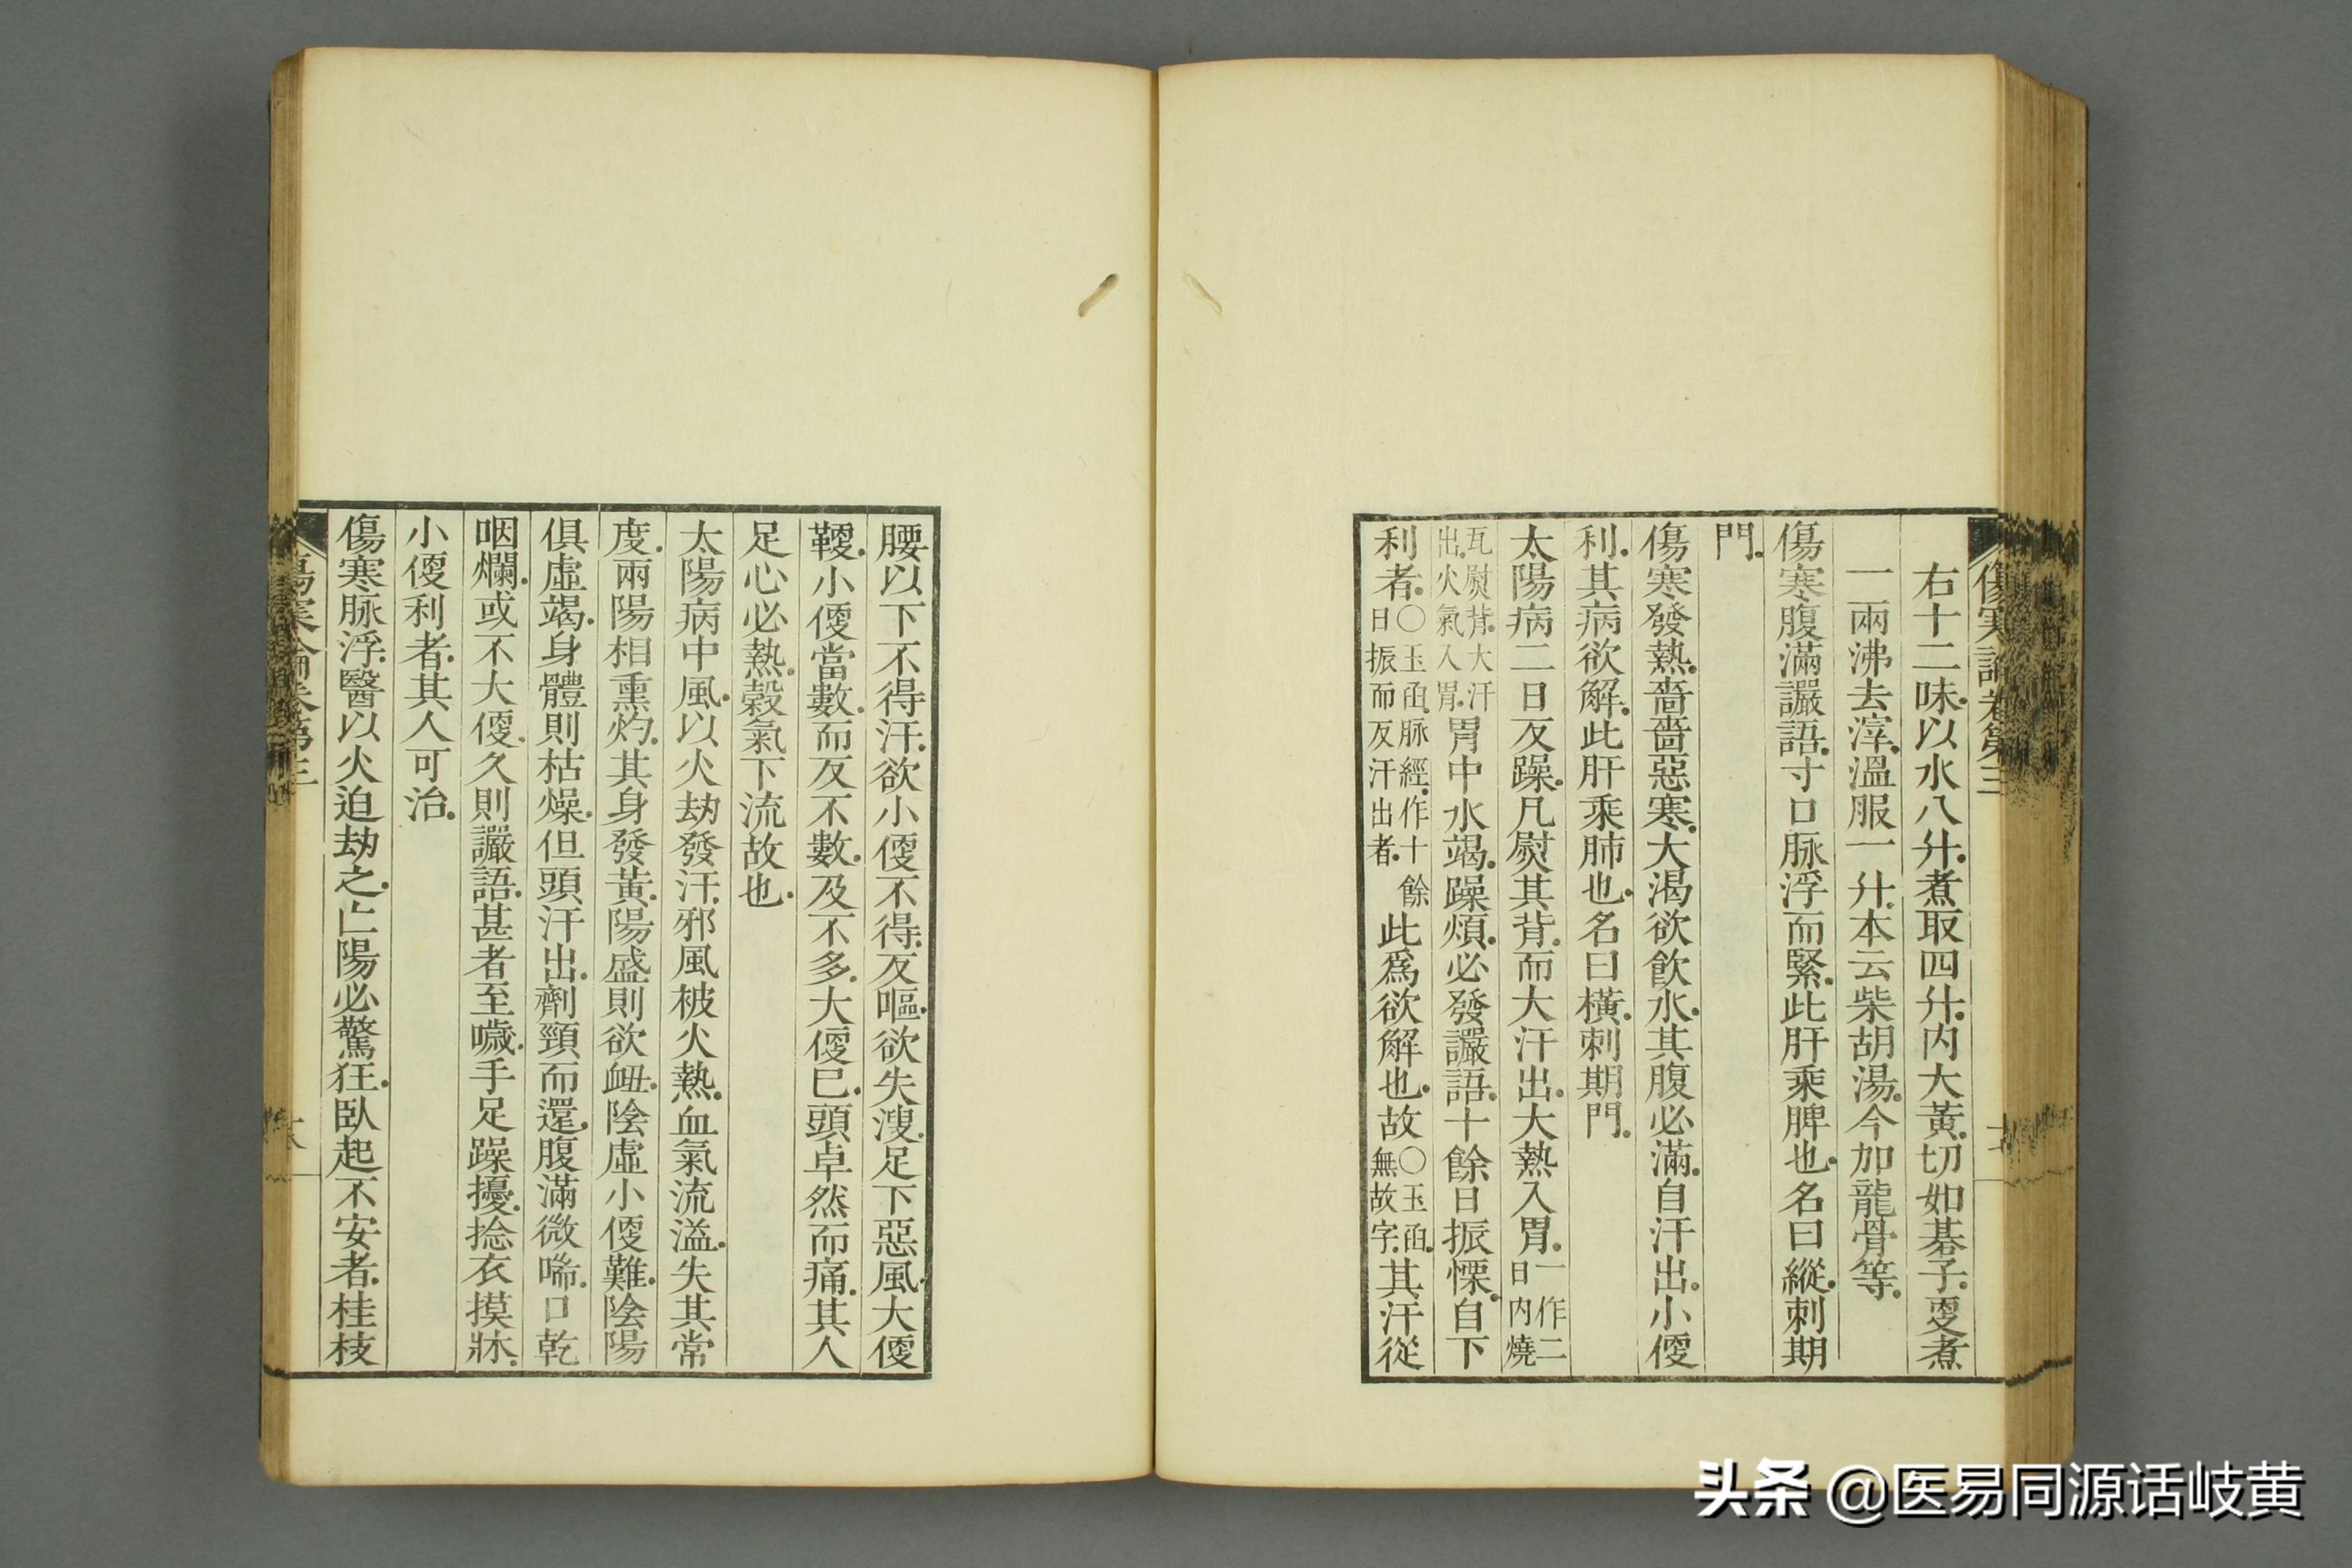 傷寒論卷第三
右十二味.以水八升.煮取四升.内大黃.切如碁子.更煮
一兩沸去滓.溫服一升.本云柴胡湯.今加龍骨等.
傷寒腹滿讝語.寸口脉浮而緊.此肝乘脾也.名曰縱.刺期
門.
傷寒發熱.嗇嗇惡寒.大渴欲飮水.其腹必滿.自汗出.小便
利.其病欲解.此肝乘肺也.名曰橫.刺期門.
太陽病二日反躁.凡熨其背.而大汗出.大熱入胃.一作二日内燒
瓦熨背.大汗出.火氣入胃.胃中水竭.躁煩.必發讝語.十餘日振慄.自下
利者.○玉函.脉經.作十餘日振而反汗出者.此爲欲解也.故○玉函.無故字.其汗從
腰以下不得汗.欲小便不得.反嘔.欲失溲.足下惡風.大便
鞕.小便當數.而反不數.及不多.大便已.頭卓然而痛.其人
足心必熱.穀氣下流故也.
太陽病中風.以火劫發汗.邪風被火熱.血氣流溢.失其常
度.兩陽相熏灼.其身發黃.陽盛則欲衄.陰虛小便難.陰陽
俱虛竭.身體則枯燥.但頭汗出.劑頸而還.腹滿微喘.口乾
咽爛.或不大便.久則讝語.甚者至噦.手足躁擾.捻衣摸牀.
小便利者.其人可治.
傷寒脉浮.醫以火迫劫之.亡陽必驚狂.臥起不安者.桂枝
傷寒論卷第三
头条 @医易同源话岐黄